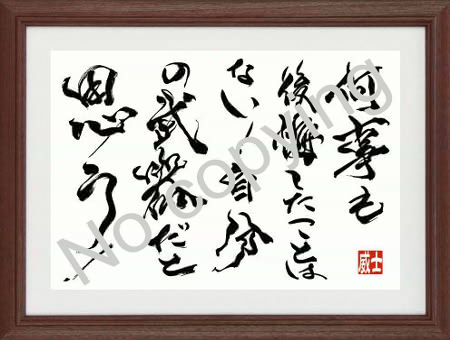 何事も
後悔したことは
ない！自分
の武器だと
思う
威士
No copying